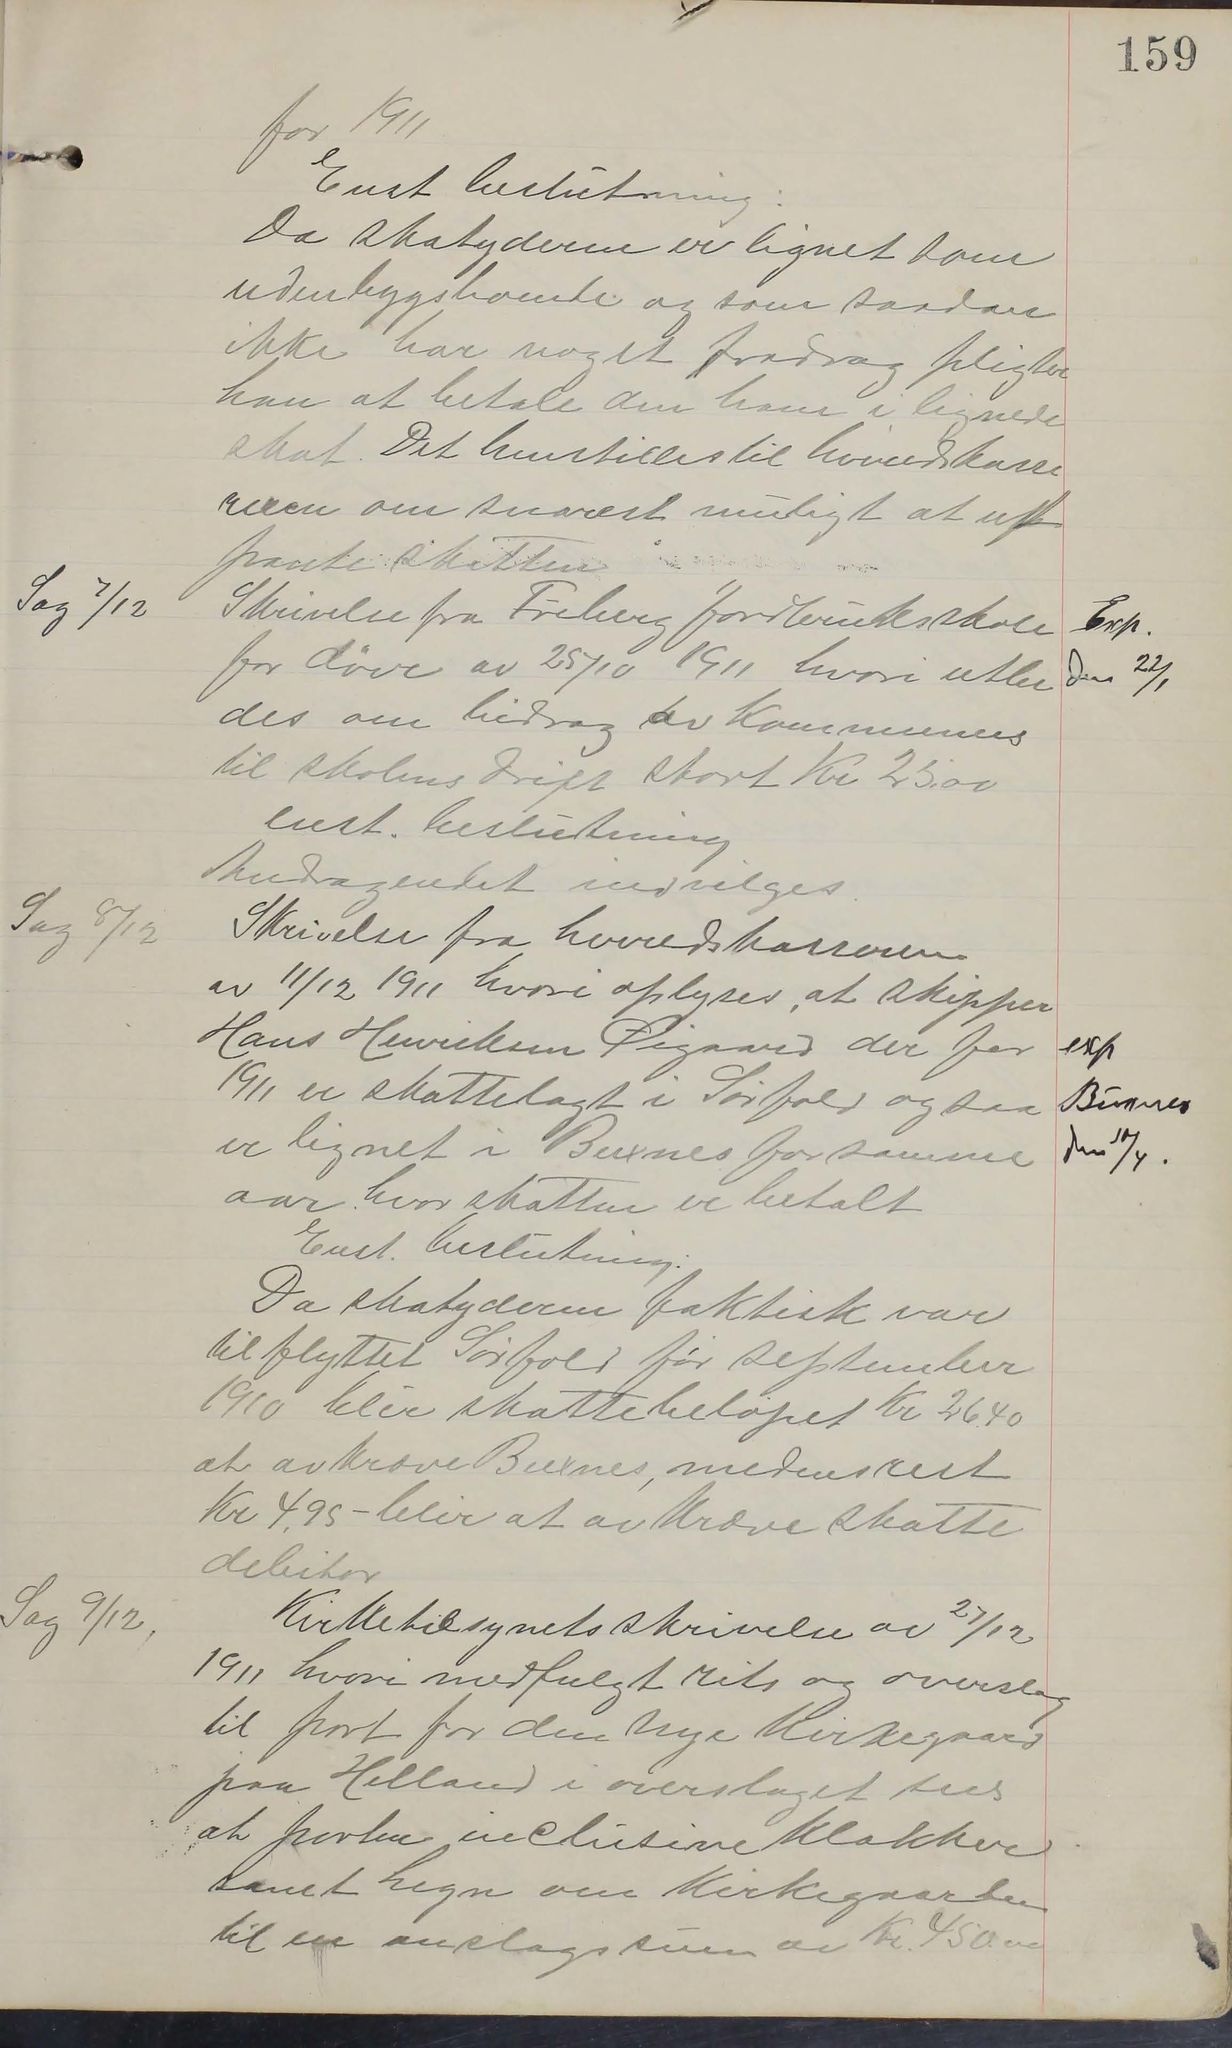 159
for 1911
Enst beslutning:
Da skatyderen er lignet som
udenbygsboende og som saadan
ikke har noget fradrag pligter
han at betale den ham i lignede
skat. Det henstilles til herredskasse
reren om snarest muligt at ut
pante skatten
Sag 7/12
Skrivelse fra Fröberg jordbruksskole
Exp.
for döve av 25/10 1911 hvori utbe
den 22/1
des om bidrag av Kommunen
til skolens drift stort Kr 25.00
enst. beslutning
Andragendet indvilges.
Sag 8/12
Skrivelse fra herredskasseren
av 11/12 1911 hvori oplyses, at skipper
Hans Henriksen Øigaard der for
exp
1911 er skattelagt i Sörfold og saa
Buxnes
er lignet i Buxnes for samme
den 10/4.
aar hvor skatten er betalt
Enst. beslutning:
Da skatyderen faktisk var
tilflyttet Sörfold för september
1910 blir skattebelöpet Kr 26.40
at avkræve Buxnes, medens rest
Kr 4,95 - blir at avkræve skatte
debitor
Sag 9/12,
Kirketilsynets skrivelse av 27/12
1911 hvori medfulgt rits og overslag
til port for den nye Kirkegaard
paa Helland i overslaget sees
at porten inclusive Klokker
samt hegn om Kirkegaarden
til en anslagssum av Kr. 450.00